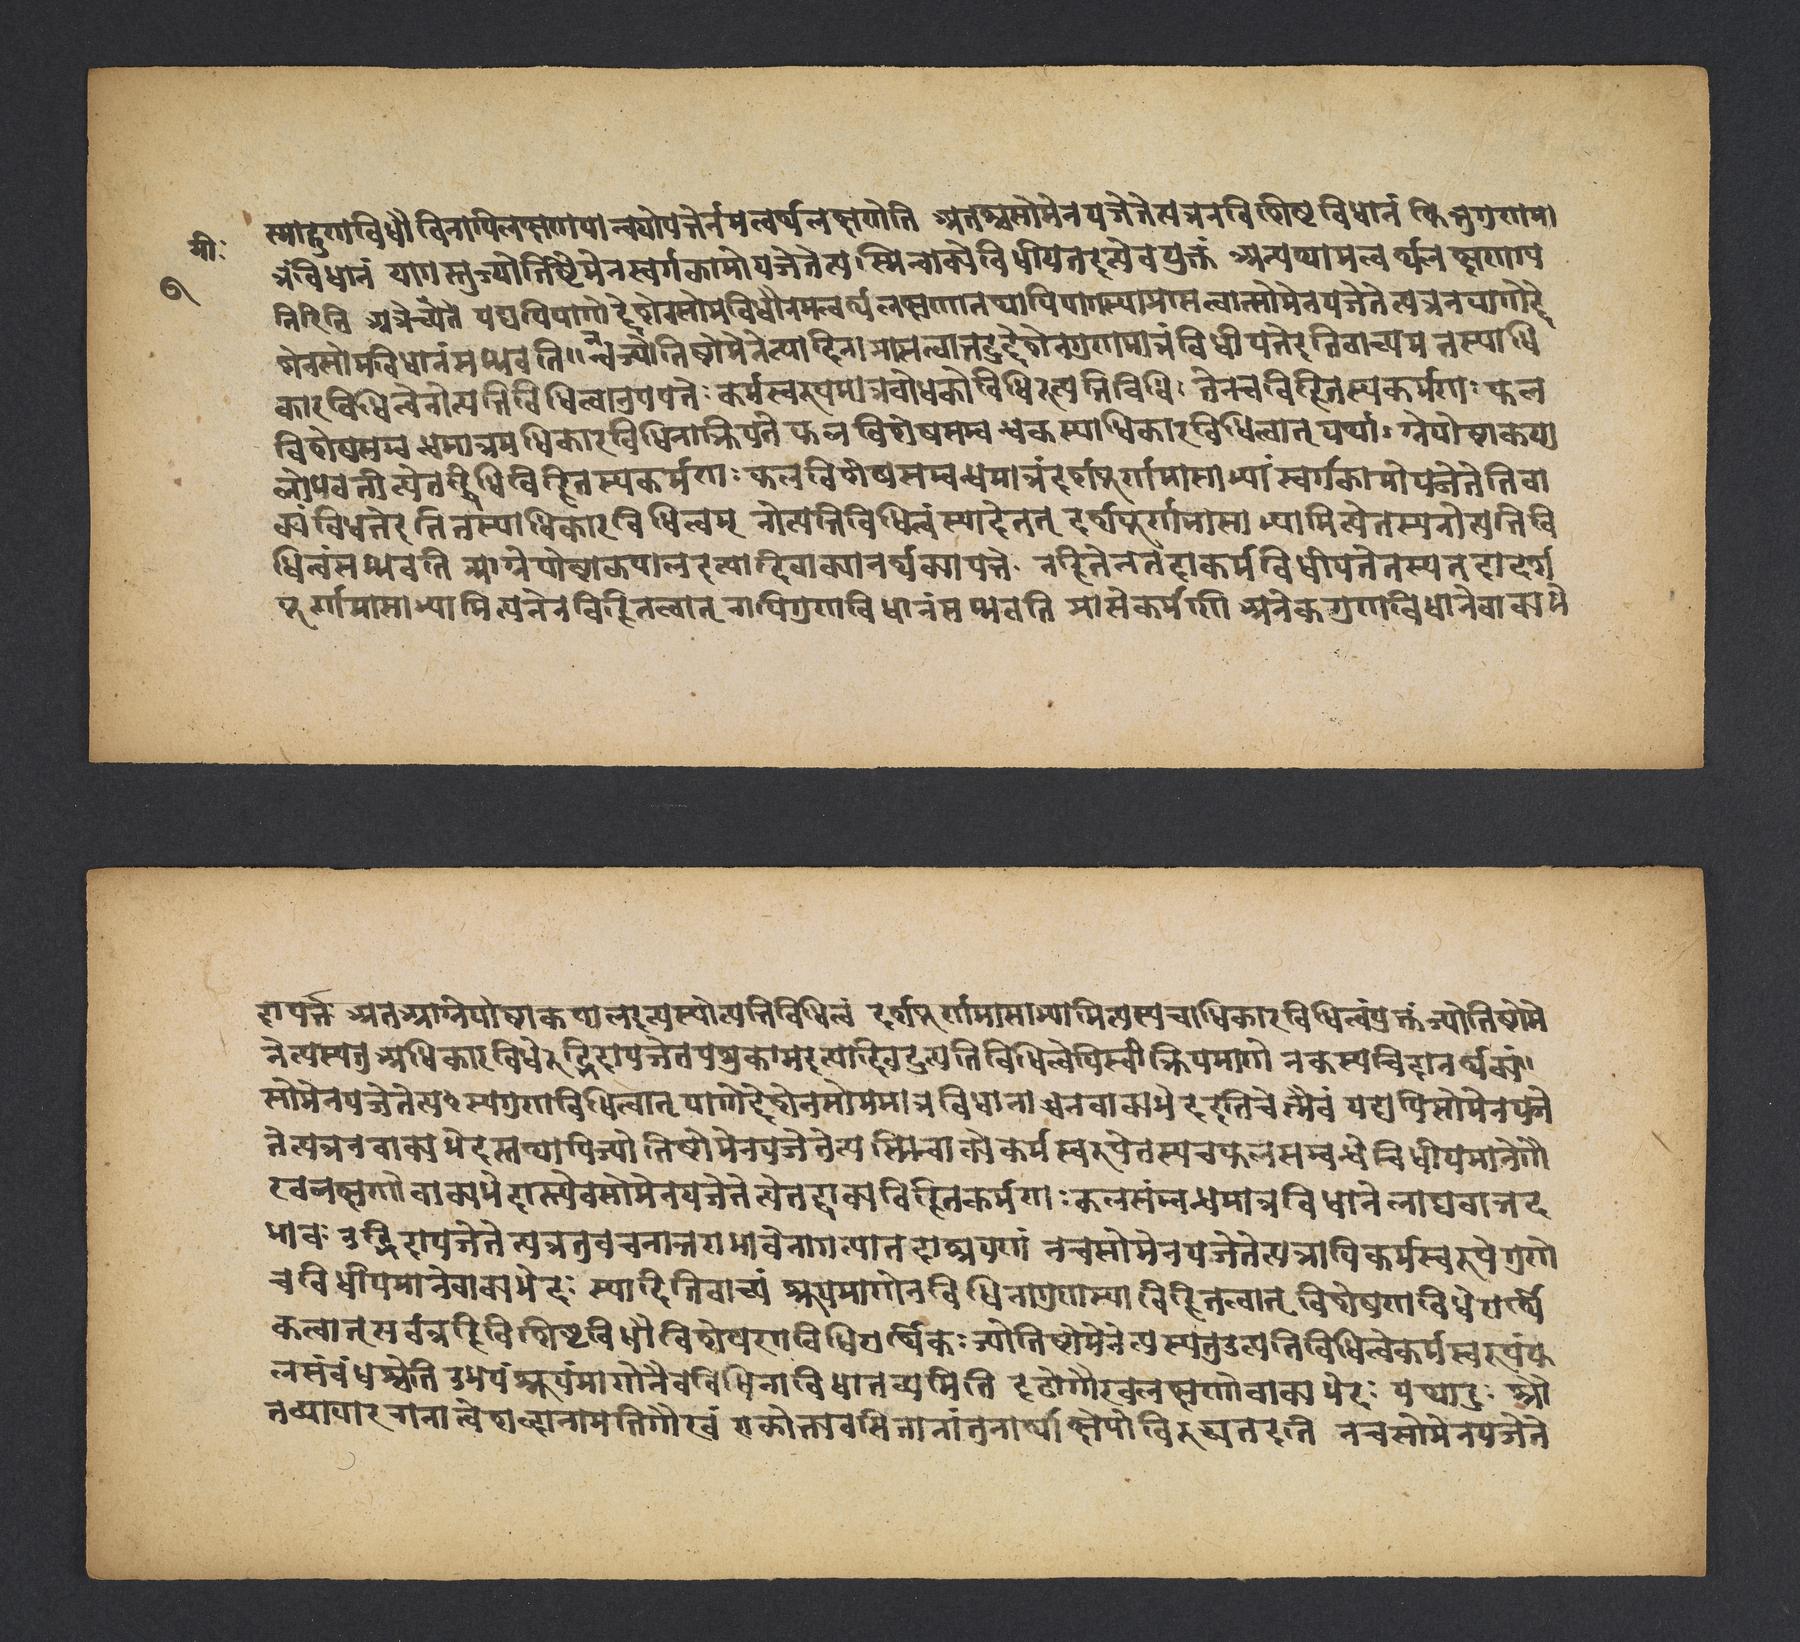 स्माद्गुणविधौ विनापि लक्षणयान्वयोपपत्तेर्नमत्वर्थलक्षणेति अतश्च सोमेन यजेतेत्यत्र न विशिष्टविधानं किन्तु गुणमा
मीः
१
त्रं विधानं यागस्तु ज्योतिष्टोमेन स्वर्गकामो यजेतेत्यस्मिन्वाक्ये विधीयत इत्येव युक्तं अन्यथा मत्वर्थलक्षणाप
त्तिरिति अत्रोच्यते यद्यपि यागोद्देशेन सोमविधौ न मत्वर्थलक्षणा तथापि यागस्याप्राप्तत्वात्सोमेन यजेतेत्यत्र न यागोद्दे
शेन सोमविधानं सम्भवति॥ न च ज्योतिष्टोमेनेत्यादिना प्राप्तत्वात्तदुद्देशेन गुणमात्रं विधीयत इति वाच्यम् तस्याधि
कारविधित्वेनोत्पत्तिविधित्वानुपपत्तेः कर्मस्वरूपमात्रबोधको विधिरुत्पत्तिविधिः तेन च विहितस्य कर्मणः फल
विशेषसम्बन्धमात्रमधिकारविधिना क्रियते फलविशेषसम्बन्धकस्याधिकारविधित्वात् यथाऽऽग्नेयोष्टाकपा
लो भवतीत्येतद्विधिविहितस्य कर्मणः फलविशेषसम्बन्धमात्रं दर्शपूर्णमासाभ्यां स्वर्गकामो यजेतेति वा
क्यं विधत्ते इति तस्याधिकारविधित्वम् नोत्पत्तिविधित्वं स्यादेतत् दर्शपूर्णमासाभ्यामित्येतस्य नोत्पत्तिवि
धित्वं सम्भवति आग्नेयोष्टाकपाल इत्यादिवाक्यानर्थक्यापत्तेः नहि तेन तदा कर्म विधीयते तस्य तदा दर्श
पूर्णमासाभ्यामित्यनेन विहितत्वात् नापि गुणविधानं सम्भवति प्राप्ते कर्मणि अनेकगुणविधाने वाक्यभे
दापत्तेः अत आग्नेयोष्टाकपाल इत्यस्योत्पत्तिविधित्वं दर्शपूर्णमासाभ्यामित्यस्य चाधिकारविधित्वं युक्तं ज्योतिष्टोमे
नेत्यस्य तु अधिकारविधेरुद्भिदा यजेत पशुकाम इत्यादिवदुत्पत्तिविधित्वेपि स्वीक्रियमाणे न कस्यचिदानर्थक्यं॥
सोमेन यजेतेत्यस्य गुणविधित्वात् यागोद्देशेन सोममात्रविधानाच्च न वाक्यभेद इति चेन्मैवं यद्यपि सोमेन यजे
तेत्यत्र न वाक्यभेदस्तथापि ज्योतिष्टोमेन यजेतेत्यस्मिन्वाक्ये कर्मस्वरूपे तस्य च फलसम्बन्धे विधीयमाने गौ
रवलक्षणो वाक्यभेदोस्त्येव सोमेन यजेतेत्येतद्वाक्यविहितकर्मणः फलसंम्बन्धमात्रविधाने लाघवात्तद
भावः उद्भिदा यजेतेत्यत्र तु वचनान्तराभावेनागत्यातदाश्रयणं न च सोमेन यजेतेत्यत्रापि कर्मस्वरूपे गुणे
च विधीयमाने वाक्यभेदः स्यादिति वाच्यं श्रूयमाणेन विधिना गुणस्याविहितत्वात् विशेषणविधेरार्थि
कत्वात् सर्वत्र हि विशिष्टविधौ विशेषणविधिरार्थिकः ज्योतिष्टोमेनेत्यस्य तु उत्पत्तिविधित्वे कर्मस्वरूपं फ
लसंबंधश्चेति उभयं श्रूयमाणेनैव विधिना विधातव्यमिति दृढोगौरवलक्षणो वाक्यभेदः यथाहुः श्रौ
तव्यापारनानात्वे शब्दानामतिगौरवं एकोक्त्यवसितानां तु नार्थाक्षेपो विरुध्यत इति न च सोमेन यजेते